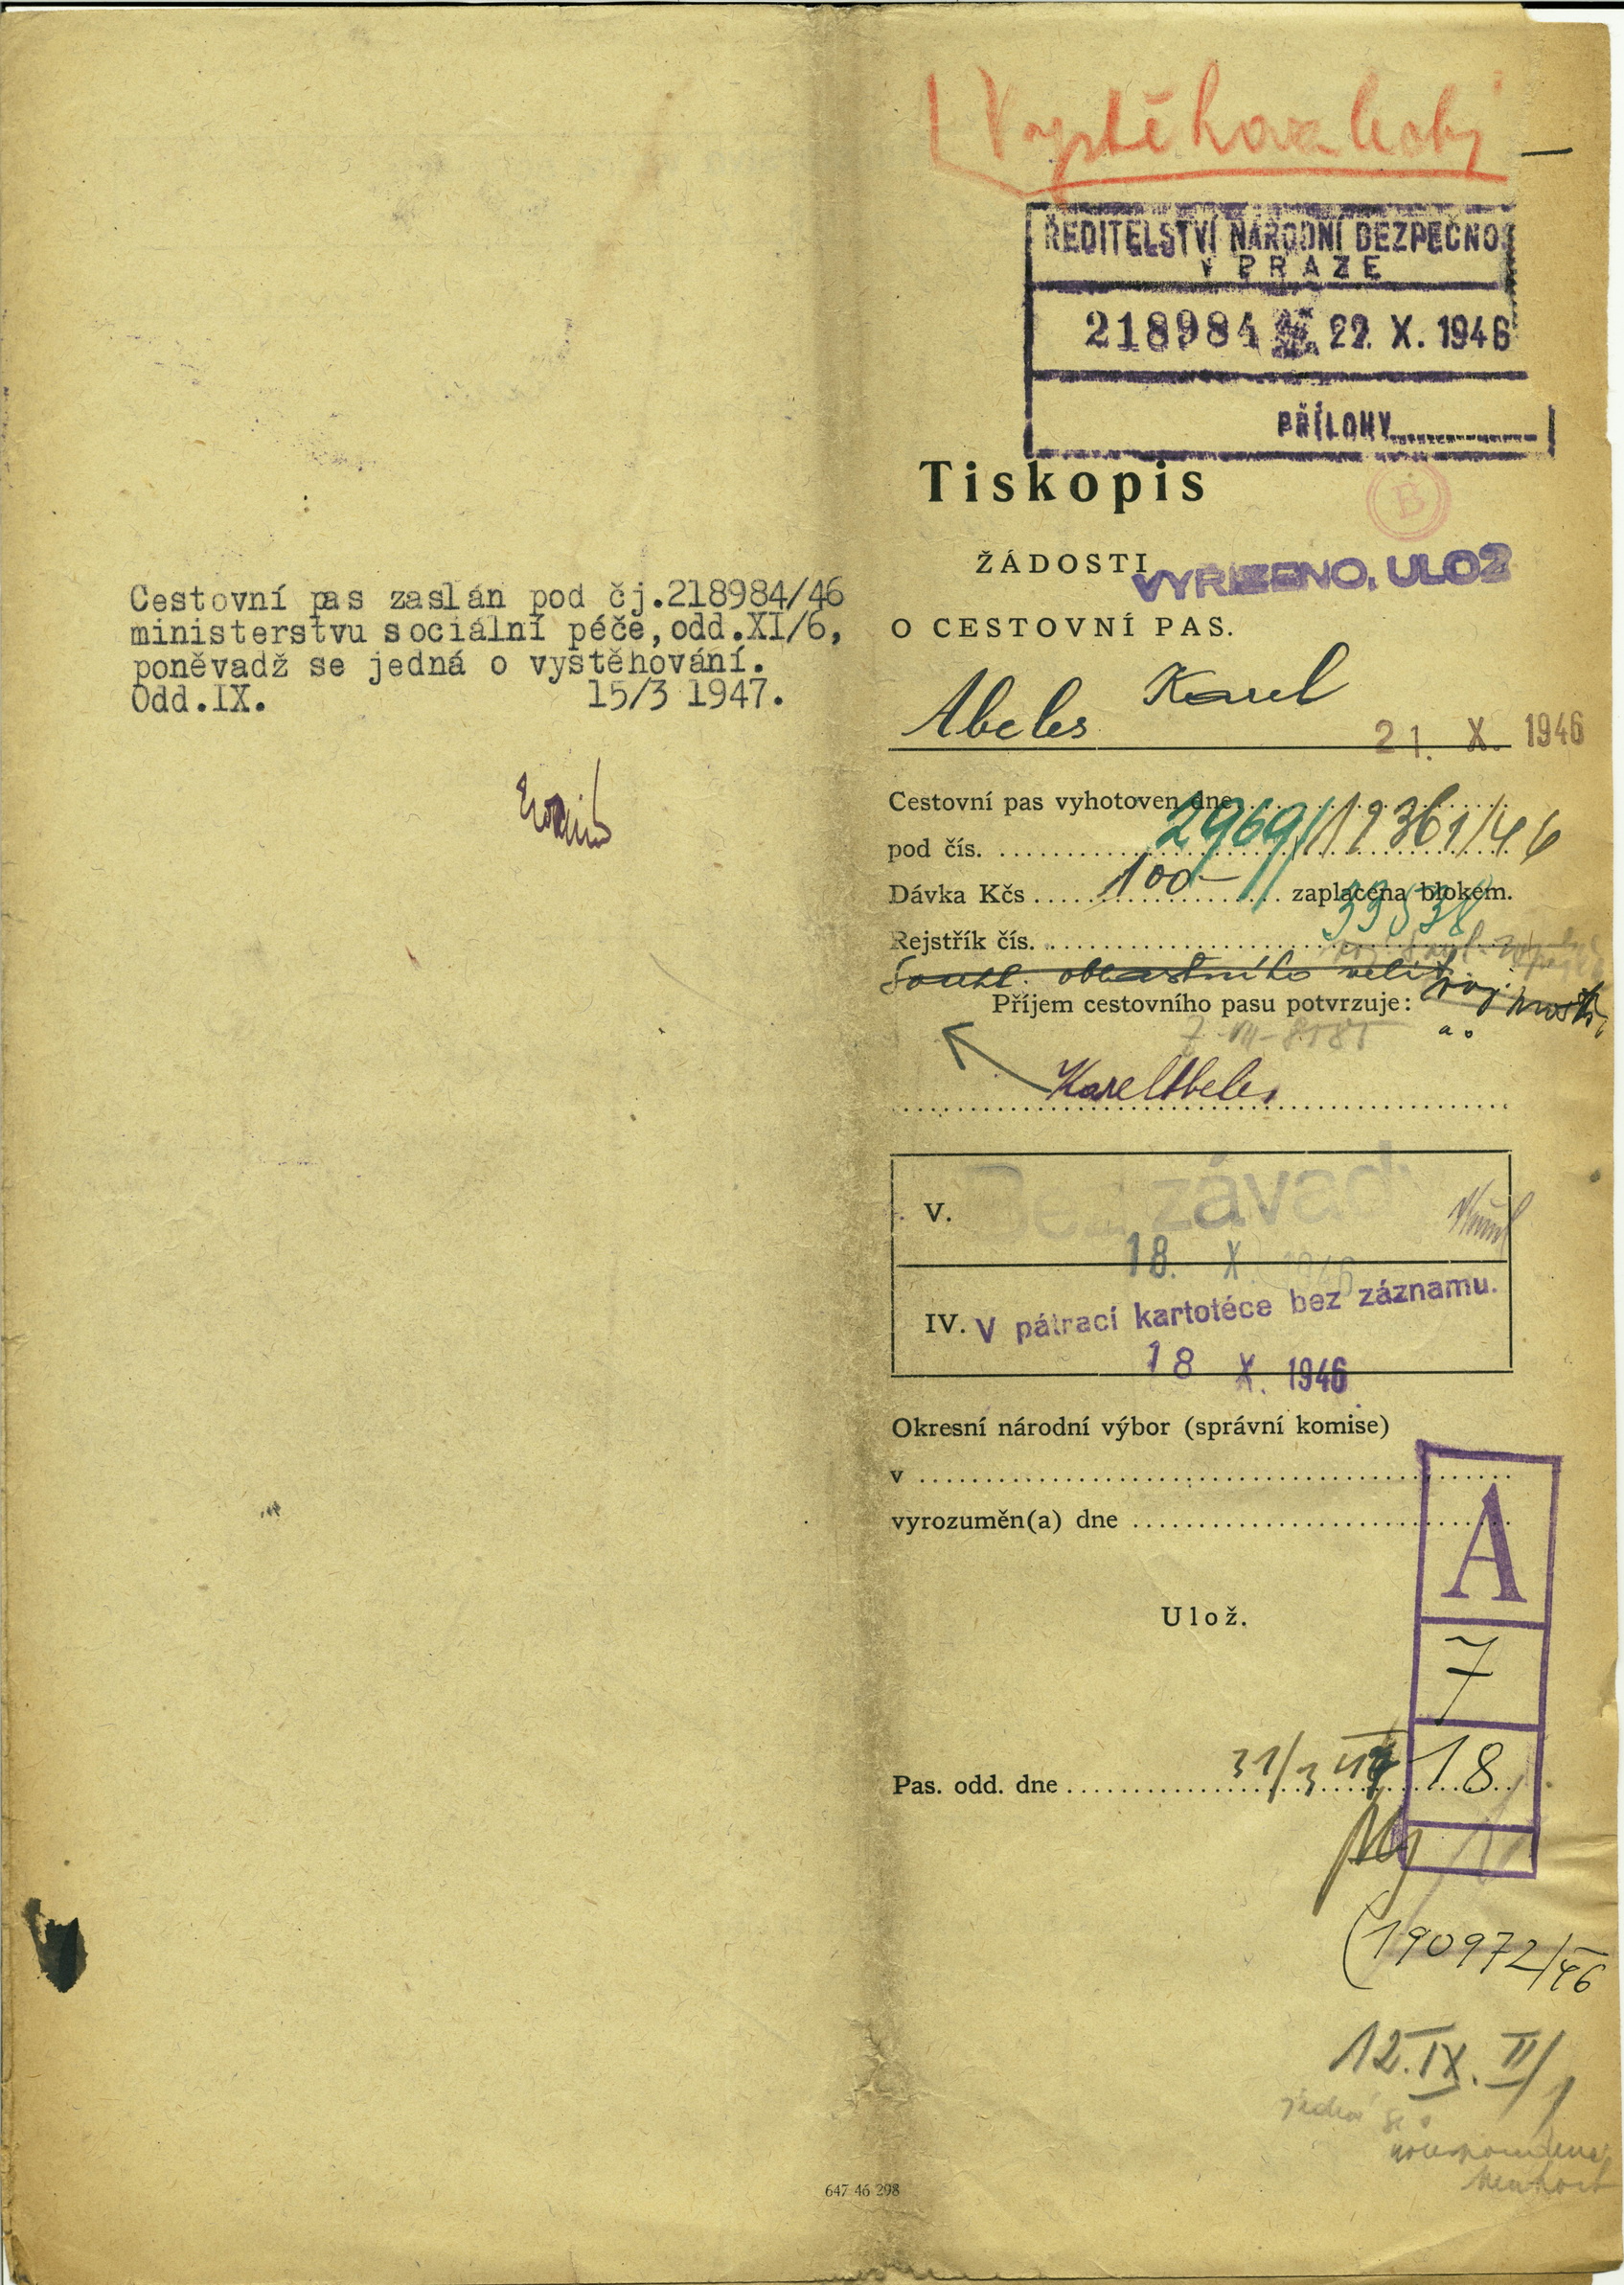 Cestovní pas zaslán pod čj.218984/46
ministerstvu sociální péče,odd.XI/6,
poněvadž se jedná o vystěhování.
Odd.IX. 15/3 1947.
Vystěhovalecký
ŘEDITELSTVÍ NÁRODNÍ BEZPEČNOS
V PRAZE
218984 22. X. 1946
PŘÍLOHY
Tiskopis
B
ŽÁDOSTI
VYŘÍZENO, ULOŽ
O CESTOVNÍ PAS.
Abeles Karel
21. X. 1946
Cestovní pas vyhotoven dne
pod čís. 2969/12361/46
Dávka Kčs 100- zaplacena blokem.
33538
Rejstřík čís.
Souhl. oblastního velit.
Příjem cestovního pasu potvrzuje:
Karel Abeles
V. Bez závad
18. X. 1946
IV. V pátrací kartotéce bez záznamu.
18 X. 1946
Okresní národní výbor (správní komise)
v
vyrozuměn(a) dne
A
Ulož.
7
Pas. odd. dne 31/3 47
18
(190972/46
12.IX. II/1
jedná se o
647 46 298